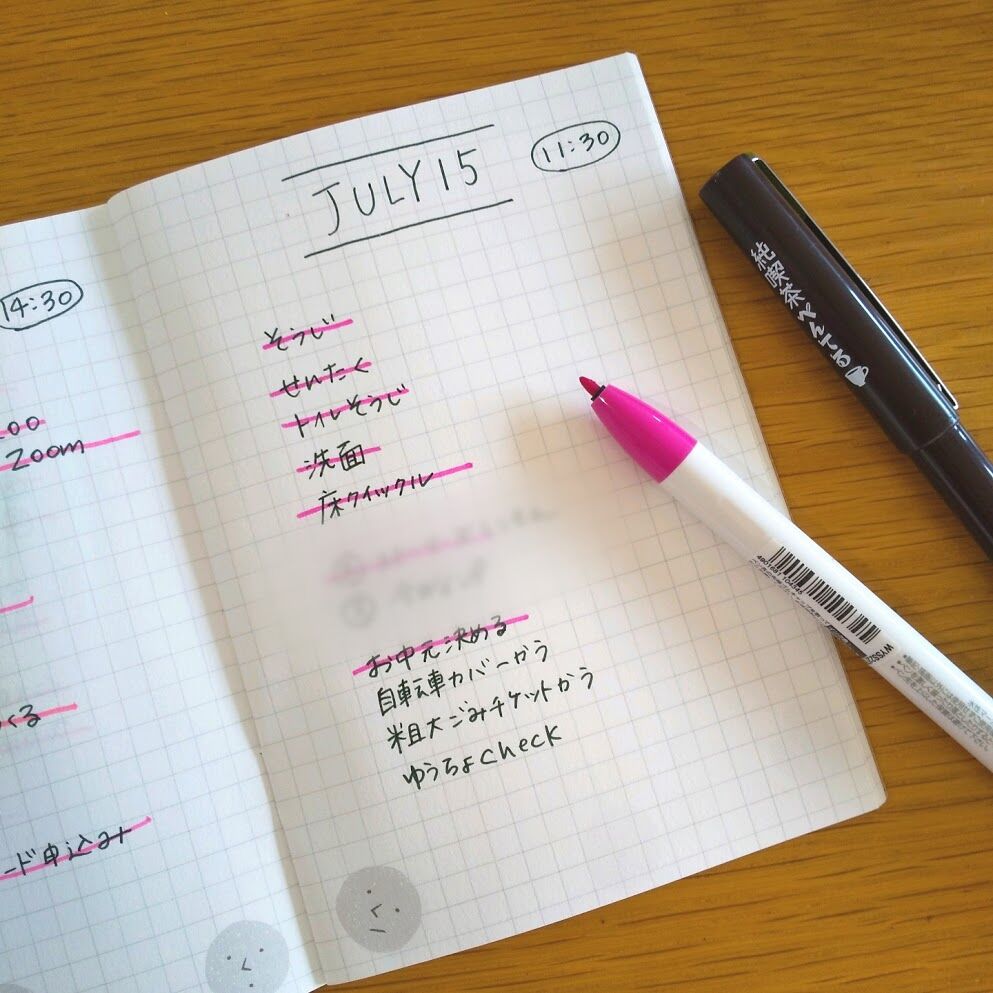 14:30
:00
Zoom
くる
ード申込み
JULY 15
11:30
そうじ
せんたく
トイレそうじ
洗面
床クイックル
お中元決める
自転車カバーかう
粗大ごみチケットかう
ゆうちょcheck
純喫茶ぺんてる
4901681 104385